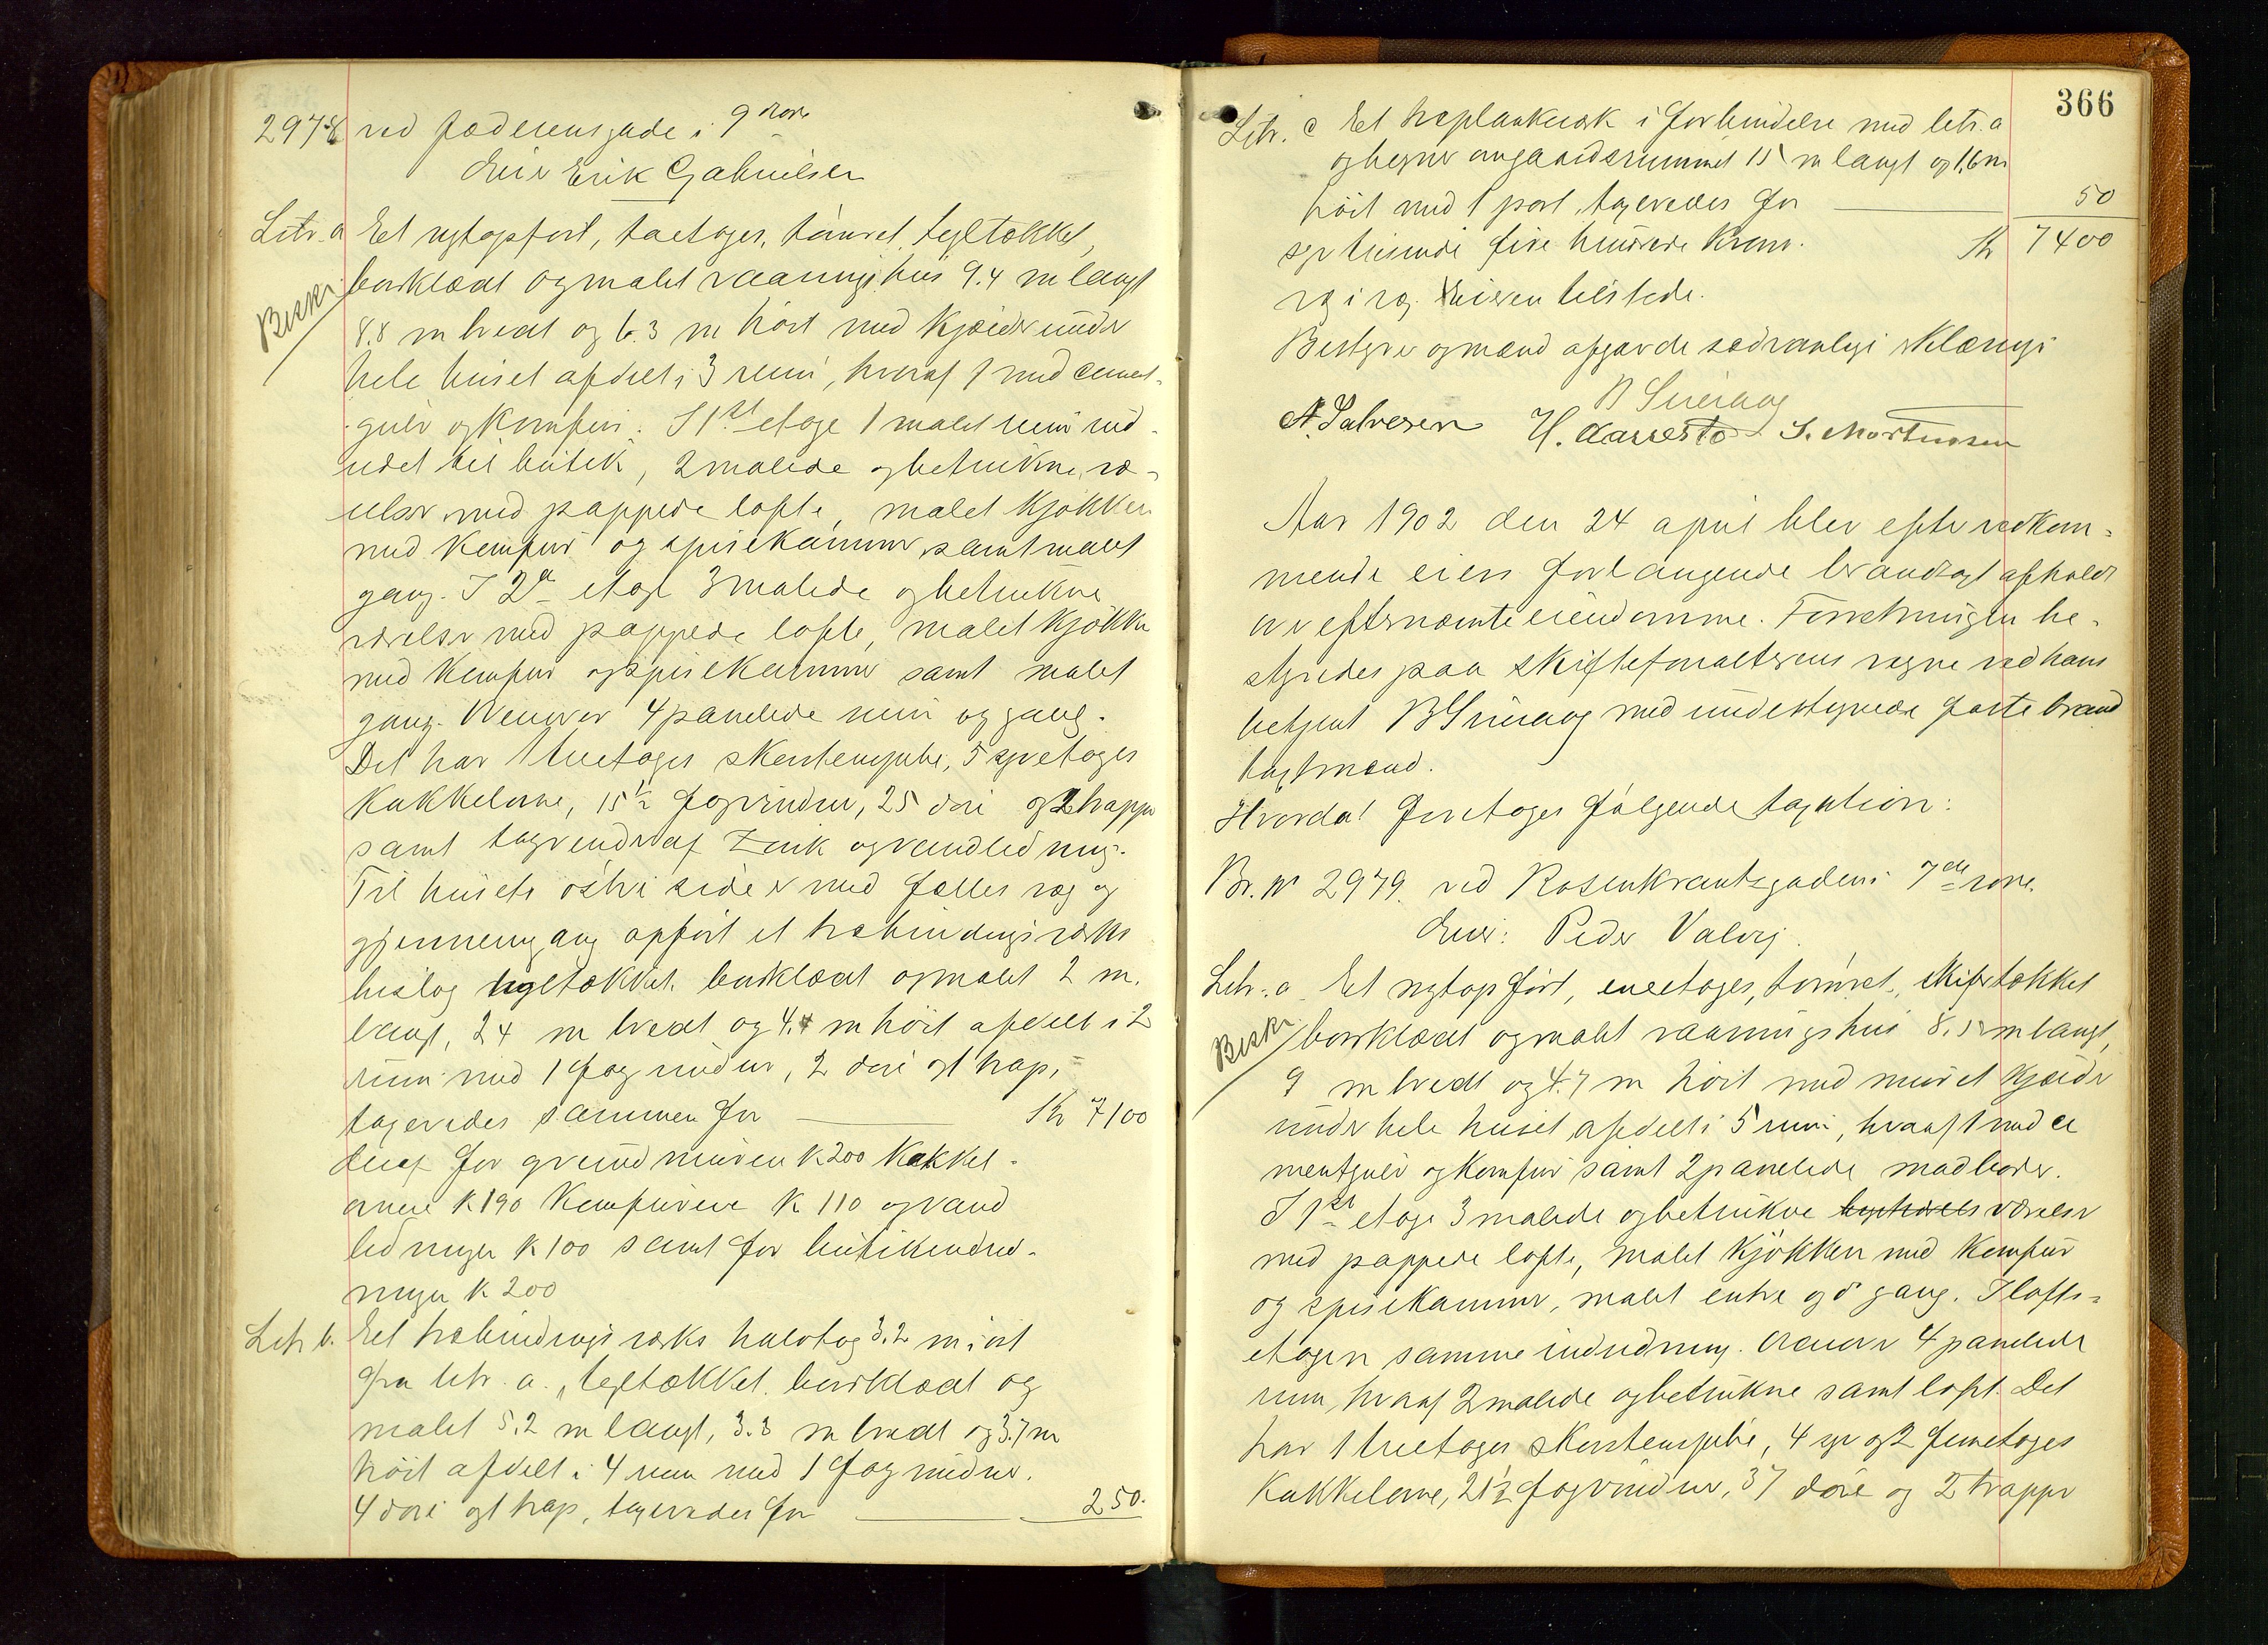 2978 ved Pedersgade i 9 rode
Eier Erik Gabrielsen
Litr. a Et nytopført, toetages, tømret, tegltækket,
Beskr. bordklædt og malet vaaningshus 9.4 m langt
8.8 m bredt og 6.3 m høit med kjelder under
hele huset afdelt i 3 rum, hvoraf 1 med cement-
gulv og komfur. I 1ste etage 1 malet rum ind-
redet til butik, 2 malede og betrukne væ-
relser med pappede lofte, malet kjøkken
med komfur og spisekammer samt malet
gang. I 2den etage 3 malede og betrukne
værelser med pappede lofte, malet kjøkken
med komfur og spisekammer samt malet
gang. Ovenover 4 panelede rum og gang.
Det har 1 treetages skorstenspibe, 5 enetages
kakkelovne, 15 1/2 fag vinduer, 25 døre og 2 trapper
samt tagrender af zink og vandledning.
Til husets østre side er med fælles væg og
gjennemgang opført et træbindingsværks
bislag tegltækket, bordklædt og malet 2 m.
langt, 2.4 m bredt og 4.4 m høit afdelt i 2
rum med 1 fag vinduer, 2 døre og 1 trap,
taxeredes sammen for Kr 7100
deraf for grundmuren K 200 kakkel-
ovnene K 190 komfurene K 110 og vand
ledningen K 100 samt for butikindred-
ningen K 200
Litr b. Et træbindingsværks halvtag 3.2 m i øst
fra litr. a., tegltækket, bordklædt og
malet 5.2 m langt, 3.3 m bredt og 3.7 m
høit afdelt i 4 rum med 1 fag vinduer.
4 døre og 1 trap, taxeredes for 250.
366
Litr. c Et træplankeværk i forbindelse med litr. a
og hegner om gaardsrummet 15 m langt og 1,6 m
høit med 1 port, taxeredes for 50
syv tusinde fire hundrede kroner. Kr 7400
Eieren tilstede.
Bestyrer og mænd afgav de sædvanlige erklæringer
A. Salvesen H. Aarrestad S. Mortensen
Aar 1902 den 24 april blev efter vedkom-
mende eiers forlangende brandtaxt afholdt
over efternævnte eiendomme. Forretningen be-
styredes paa skifteforvalterens vegne ved hans
betjent med undertegnede faste brand
taxtmænd.
Hvorda foretoges følgende taxation:
Br. No 2979. ved Rosenkrantzgaden i 7de rode.
Eier: Peder Valvig.
Litr. a Et nytopført, eneetages, tømret, skifertækket
Beskr. bordklædt og malet vaaningshus 8.12 m langt,
9 m bredt og 4.7 m høit med muret kjelder
under hele huset afdelt i 5 rum, hvoraf 1 med ce
mentgulv og komfur samt 2 panelede madboder.
I 1ste etage 3 malede og betrukne værelser
med pappede lofte, malet kjøkken med komfur
og spisekammer, malet entre og do gang. I lofts-
etagen samme indredning. Ovenover 4 panelede
rum, hvoraf 2 malede og betrukne samt loft. Det
har 1 treetages skorstenspibe, 4 en og 2 femetages
kakkelovne, 21 1/2 fag vinduer, 37 døre og 2 trapper